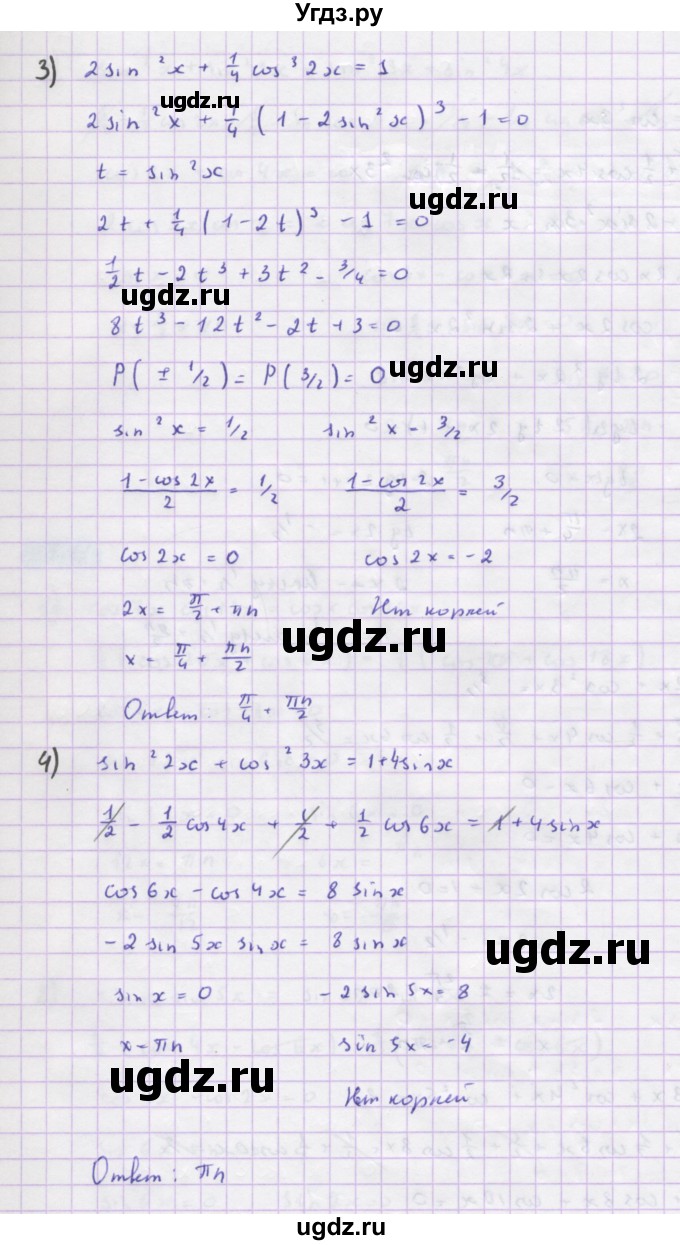 Угдз.ру
3) 2 sin²x + 1/4 cos³ 2x = 1
ugdz.ru
2 sin²x + 1/4 (1 - 2 sin²x)³ - 1 = 0
t = sin²x
ugdz.ru
2t + 1/4 (1 - 2t)³ - 1 = 0
1/2 t - 2t³ + 3t² - 3/4 = 0
ugdz.ru
8t³ - 12t² - 2t + 3 = 0
P(± 1/2) = P(3/2) = 0
ugdz.ru
sin²x = 1/2 sin²x = 3/2
(1 - cos 2x)/2 = 1/2 (1 - cos 2x)/2 = 3/2
cos 2x = 0 cos 2x = -2
2x = π/2 + πn Нет корней
ugdz.ru
x = π/4 + πn/2
Ответ: π/4 + πn/2
4) sin²2x + cos²3x = 1 + 4 sin x
1/2 - 1/2 cos 4x + 1/2 + 1/2 cos 6x = 1 + 4 sin x
cos 6x - cos 4x = 8 sin x
-2 sin 5x sin x = 8 sin x
ugdz.ru
sin x = 0 -2 sin 5x = 8
x = πn sin 5x = -4
ugdz.ru
Нет корней
Ответ: πn
ugdz.ru